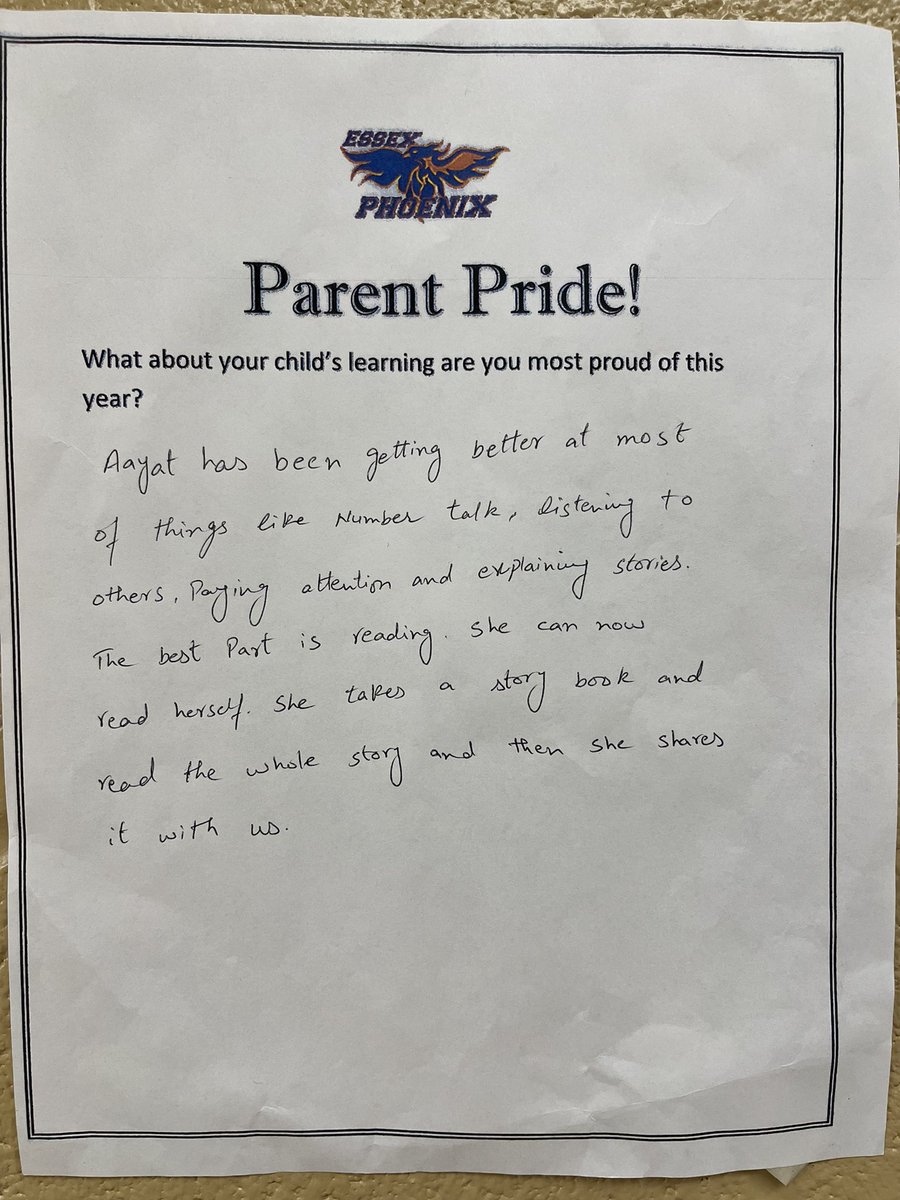 ESSEX
PHOENIX
Parent Pride!
What about your child's learning are you most proud of this
year?
Aayat has been getting better at most
of things like Number talk, listening to
others, Paying attention and explaining stories.
The best Part is reading. She can now
read herself. She takes a story book and
read the whole story and then she shares
it with us.